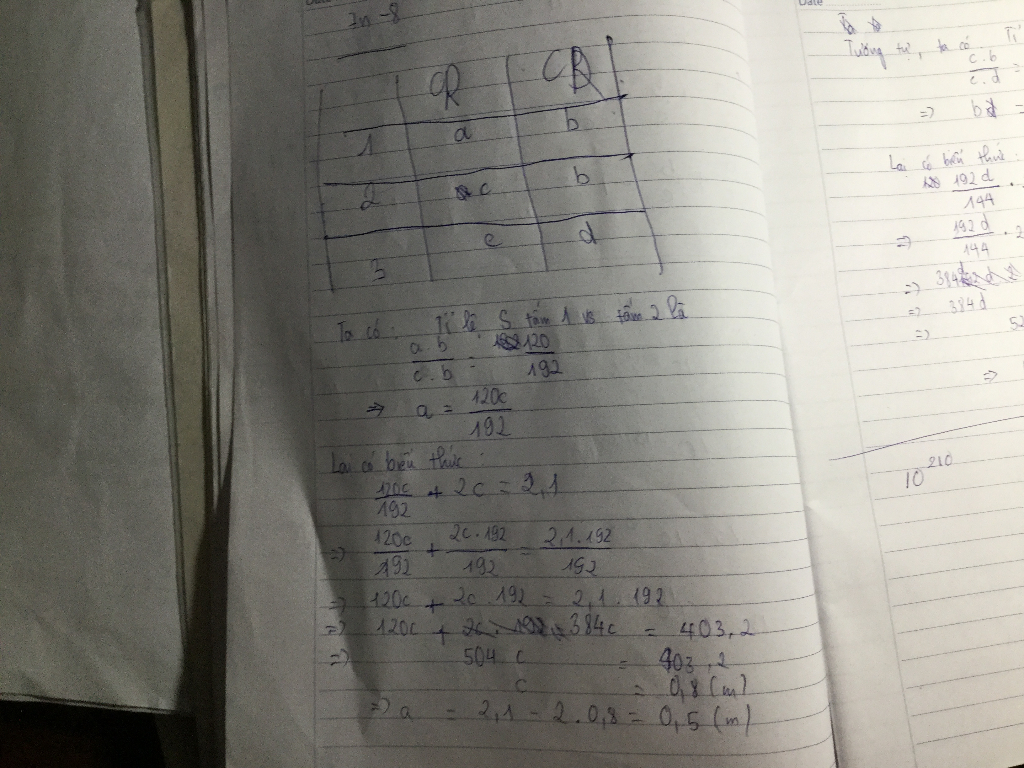 In-8
CR CD
1 a b
2 c b
3 c d
Ta có: Tỉ lệ S tấm 1 vs tấm 2 là
a b / c.b = 120 / 192
=> a = 120c / 192
Lại có biểu thức:
120c / 192 + 2c = 2,1
=> 120c / 192 + 2c.192 / 192 = 2,1.192 / 192
=> 120c + 2c 192 = 2,1.192
=> 120c + 384c = 403,2
=> 504 c = 403,2
c = 0,8 (m)
=> a = 2,1 - 2.0,8 = 0,5 (m)
Date
Tương tự, ta có Tỉ
c.b / c.d =
=> b
Lại có biểu thức:
192d / 144 .
=> 192d / 144 . 2
=> 384d
=> 384d
=> 52
=>
10^210